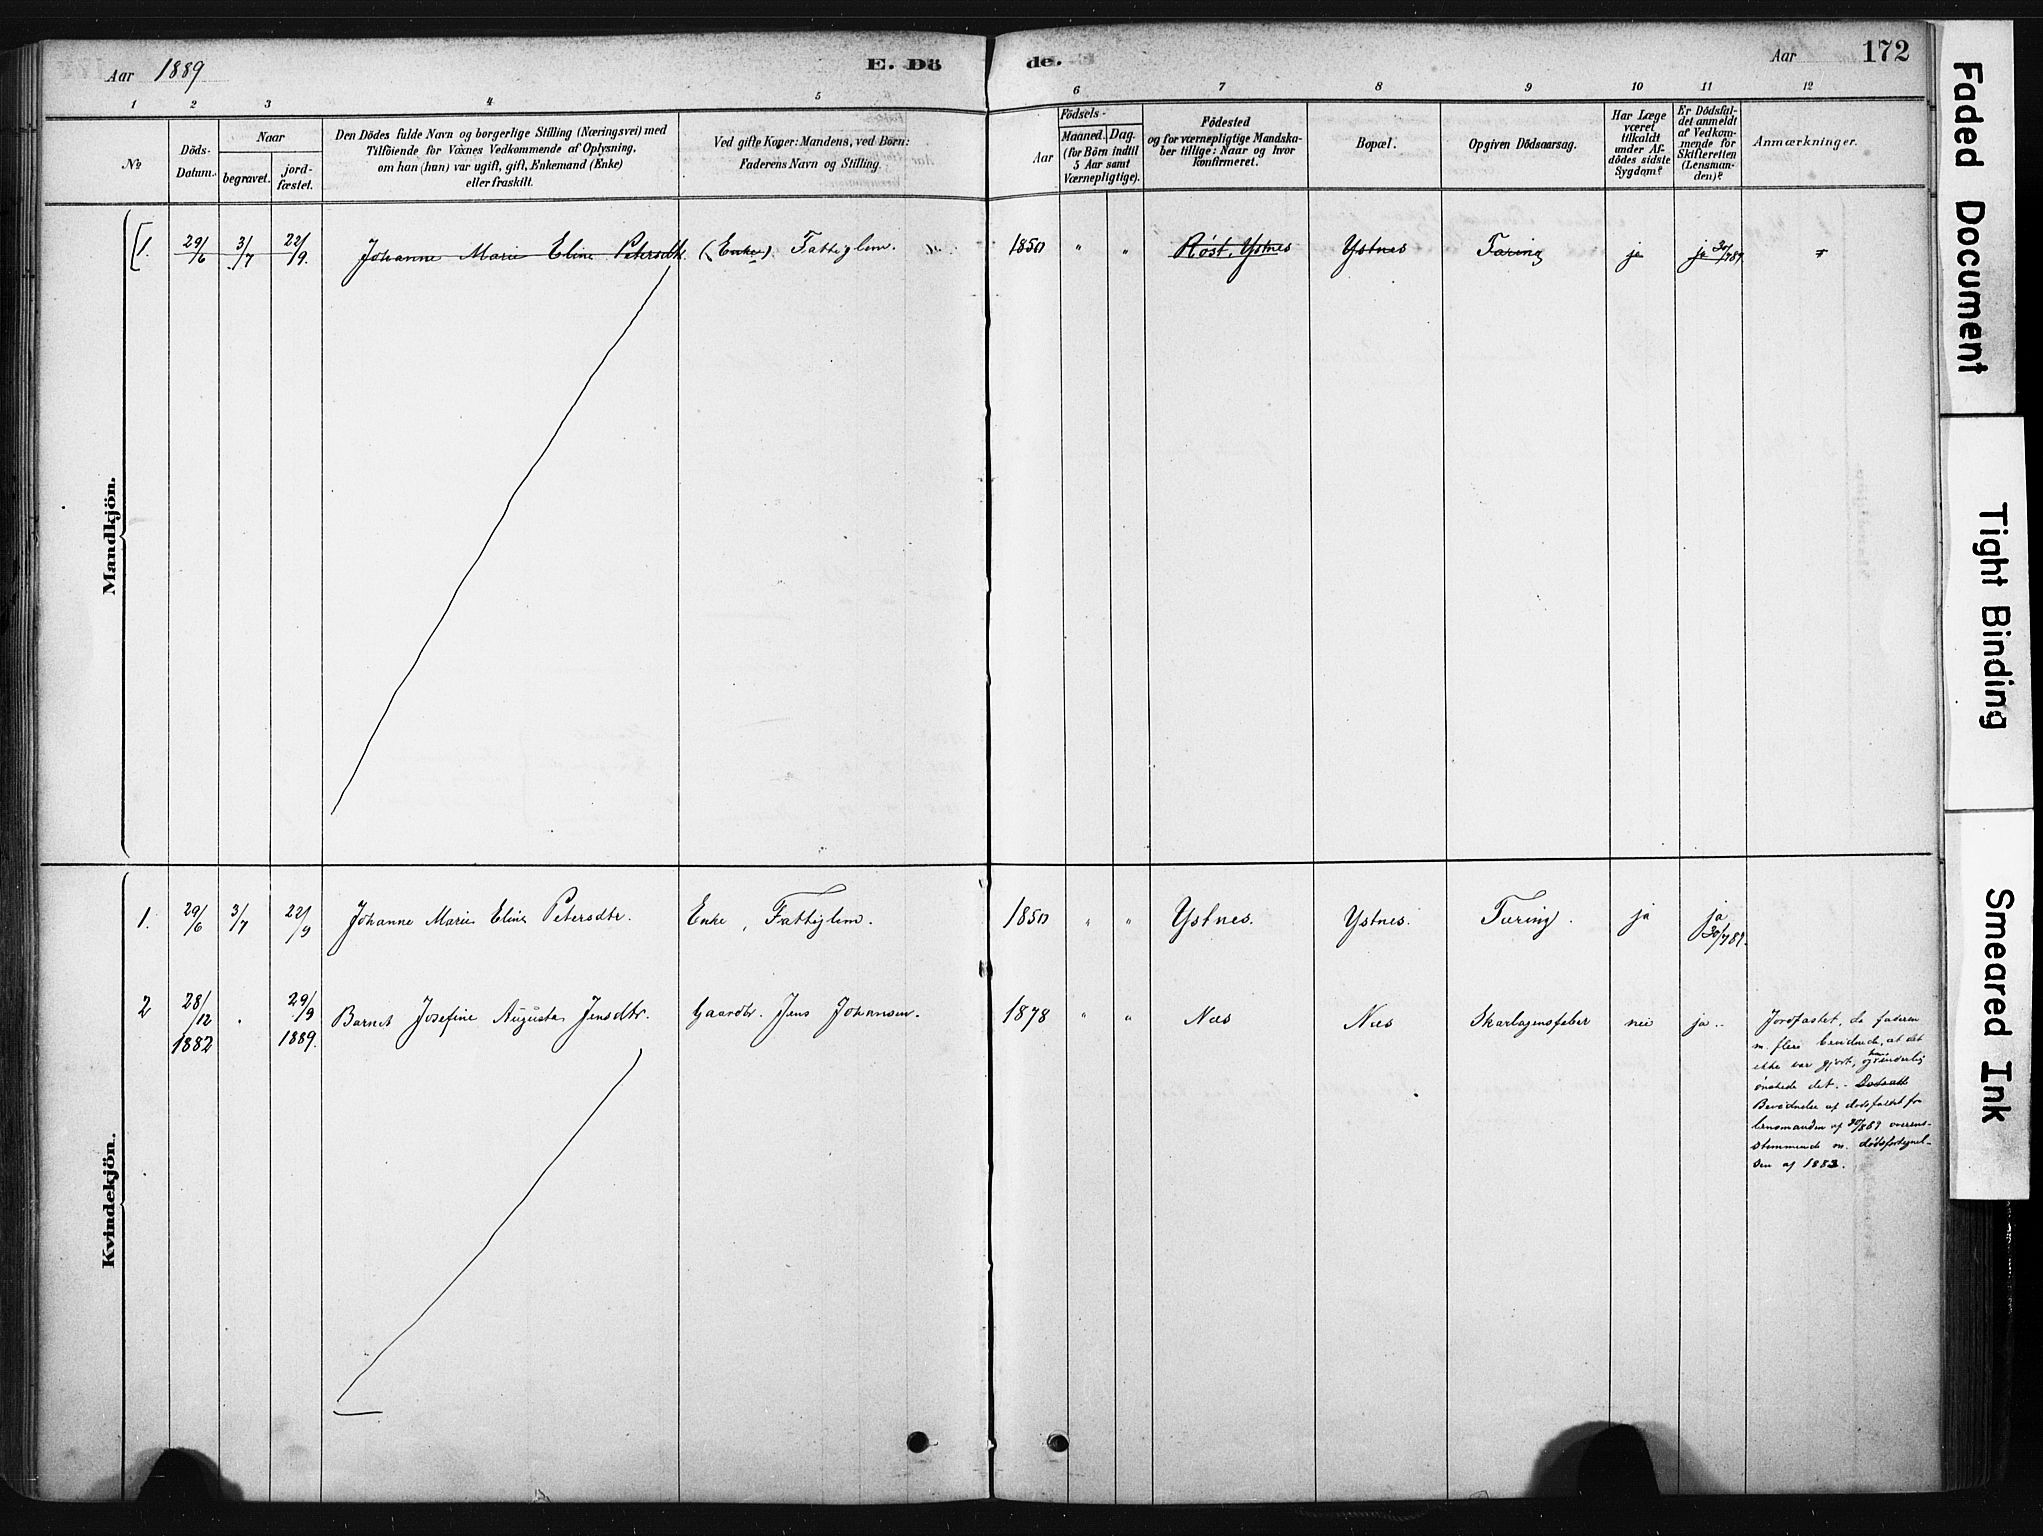 Aar 1889
E. Dö
de.
Aar
172
1 2 3 4 5 6 7 8 9 10 11 12
№
Döds-
Datum.
Naar
begravet.
jord-
fæstet.
Den Dödes fulde Navn og borgerlige Stilling (Næringsvei) med
Tilföiende for Voxnes Vedkommende af Oplysning,
om han (hun) var ugift, gift, Enkemand (Enke)
eller fraskilt.
Ved gifte Koner: Mandens, ved Börn:
Faderens Navn og Stilling.
Födsels-
Aar
Maaned. Dag.
(for Börn indtil
5 Aar samt
Værnepligtige).
Födested
og for værnepligtige Mandska-
ber tillige: Naar og hvor
konfirmeret.
Bopæl.
Opgiven Dödsaarsag.
Har Læge
været
tilkaldt
under Af-
dödes sidste
Sygdom?
Er Dödsfal-
det anmeldt
af Vedkom-
mende for
Skifteretten
(Lensman-
den)?
Anmærkninger.
Mandkjön.
1. 29/6 3/7 22/9. Johanne Marie Eline Petersdtr. (Enke). Fattiglem. 1850 " " Røst, Ystnes Ystnes Tæring ja ja 30/7 89.
Kvindekjön.
1. 29/6 3/7 22/9 Johanne Marie Eline Petersdtr. Enke, Fattiglem. 1850 " " Ystnes. Ystnes. Tæring. ja ja
30/7 89.
2 28/12 29/9 Barnet Josefine Augusta Jensdtr. Gaardbr. Jens Johansen. 1878 " " Næs Næs Skarlagensfeber nei ja..
1882 1889.
Jordfæstet, da faderen
m. flere bevidnede, at det
ikke var gjort, og inderlig
ønskede det.
Bevidnelse af dødsfaldet fra
lensmanden af overens-
stemmende m. dødsfortegnel-
sen af 1883.
Faded Document
Tight Binding
Smeared Ink